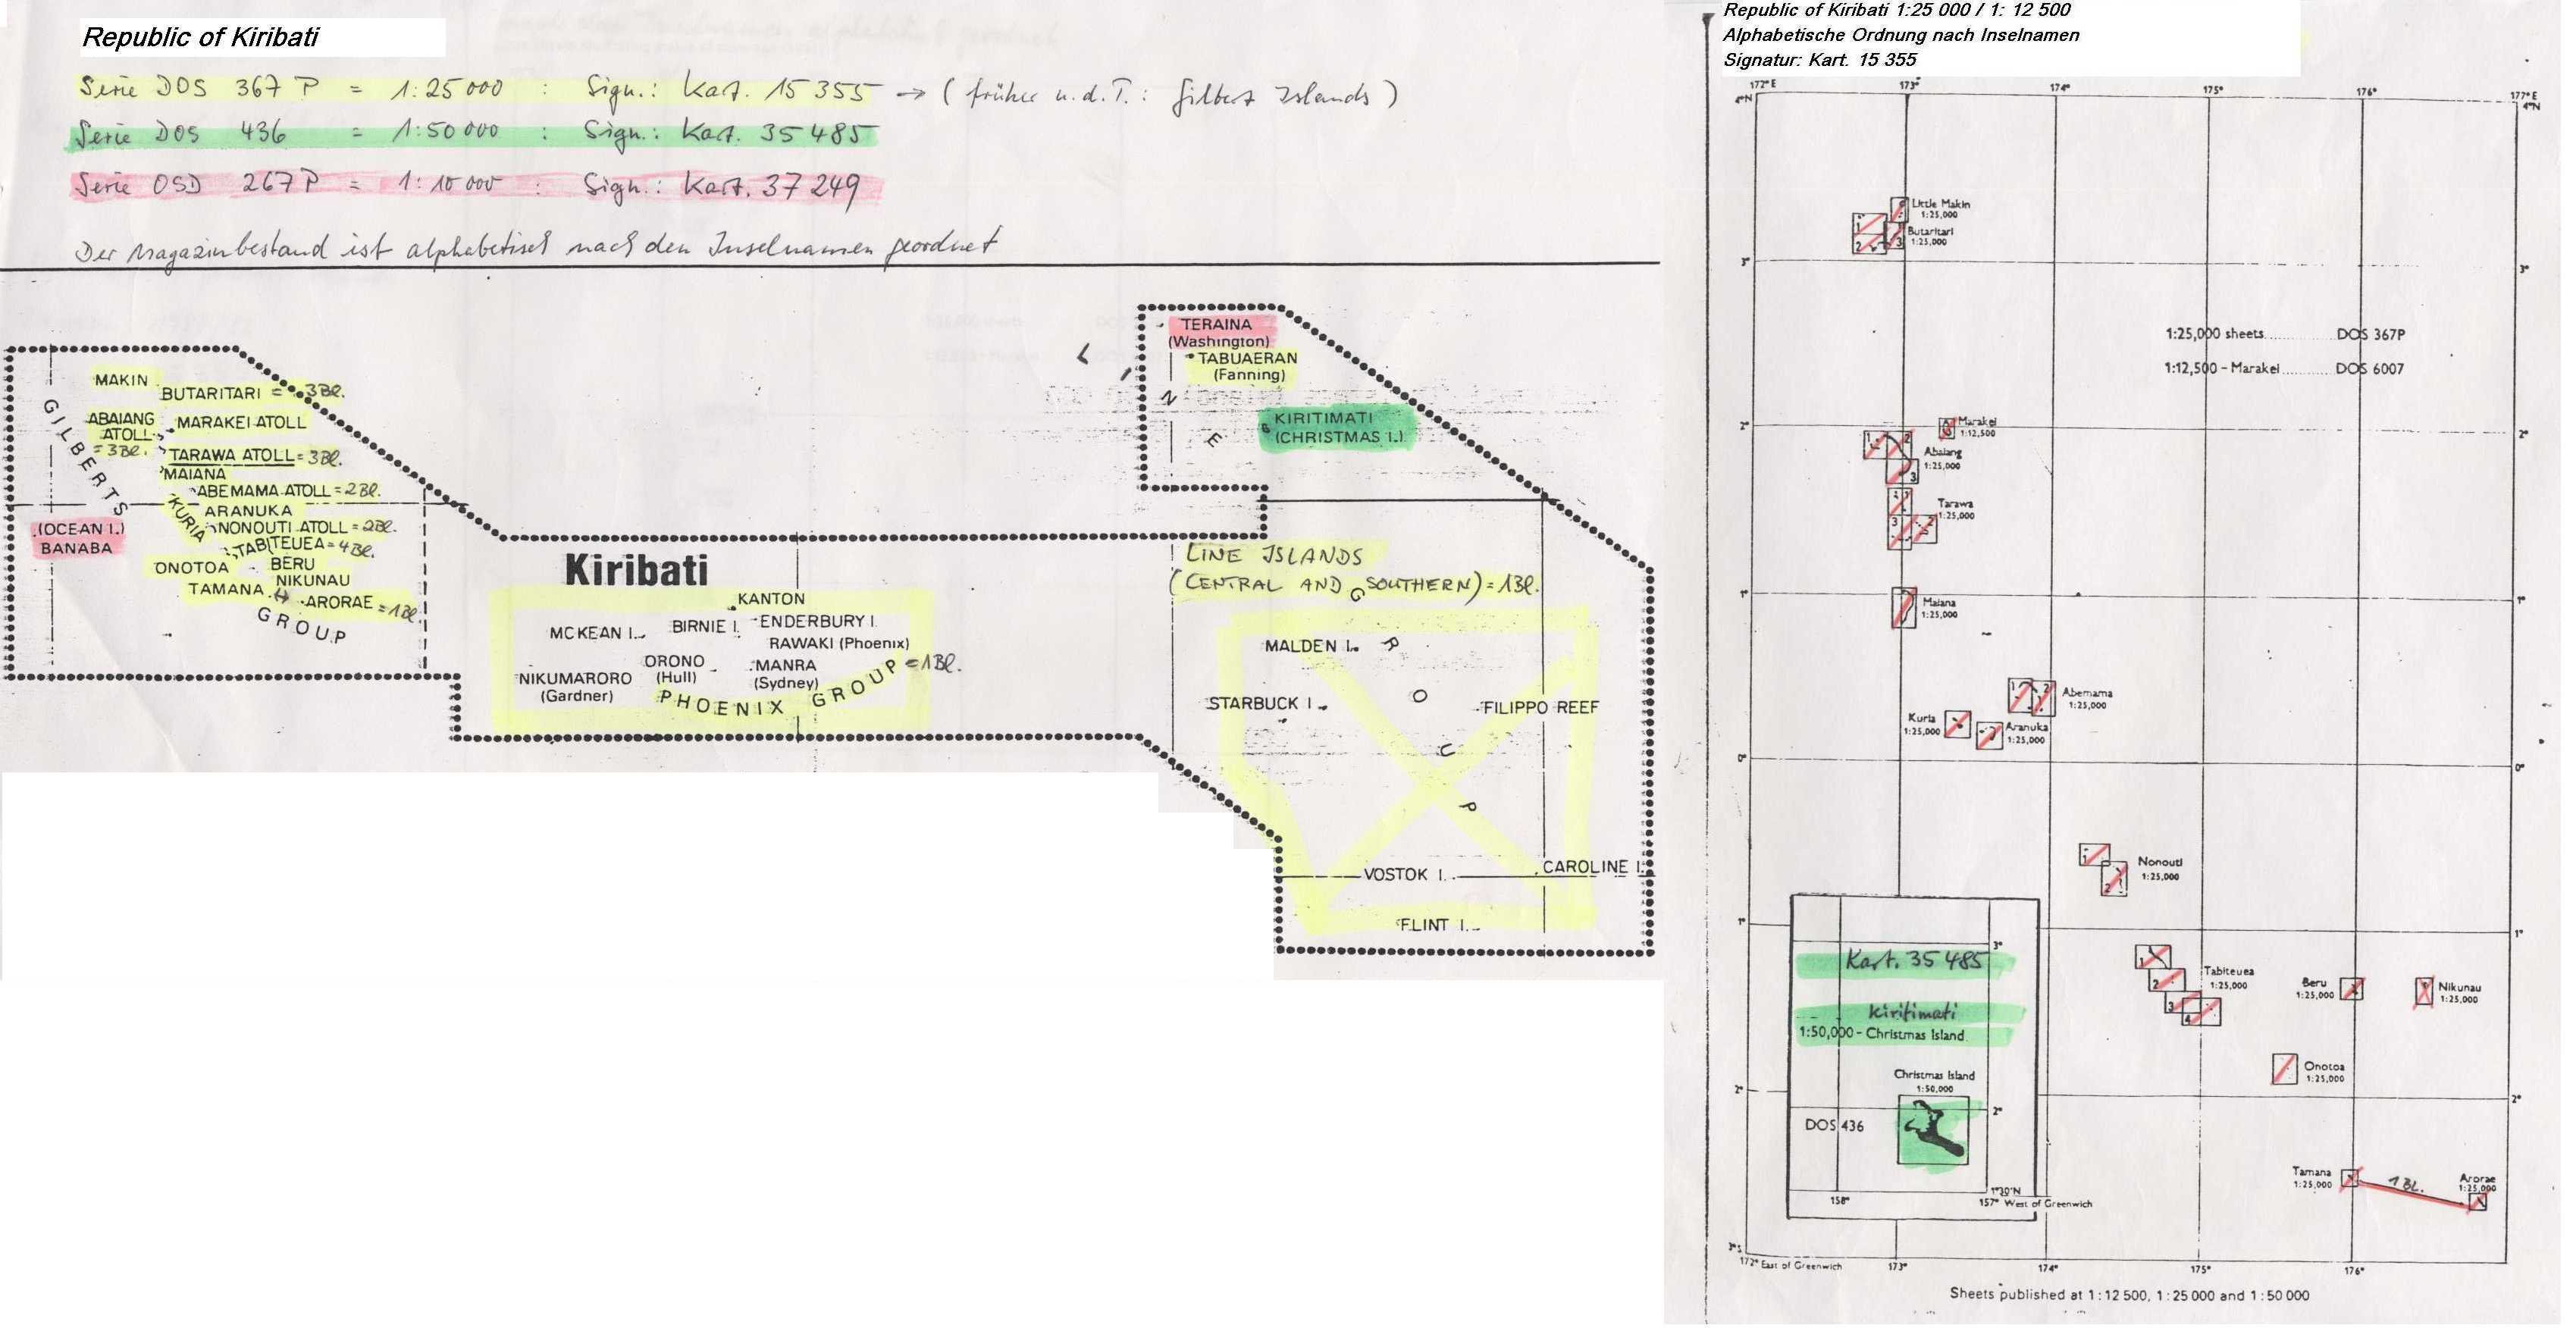 Republic of Kiribati
Serie DOS 367 P = 1:25 000 : Sign.: Kart. 15 355 → (früher u.d.T.: Gilbert Islands)
Serie DOS 436 = 1:50 000 : Sign.: Kart. 35 485
Serie OSD 267 P = 1:10 000 : Sign.: Kart. 37 249
Der Magazinbestand ist alphabetisch nach den Inselnamen geordnet
TERAINA
(Washington)
TABUAERAN
(Fanning)
KIRITIMATI
(CHRISTMAS I.)
L I N E
G R O U P
MAKIN
BUTARITARI = 3Bl.
ABAIANG
ATOLL
= 3Bl.
MARAKEI ATOLL
TARAWA ATOLL = 3Bl.
MAIANA
ABEMAMA ATOLL = 2Bl.
KURIA
ARANUKA
NONOUTI ATOLL = 2Bl.
TABITEUEA = 4Bl.
(OCEAN I.)
BANABA
ONOTOA
BERU
NIKUNAU
TAMANA ↔ ARORAE = 1Bl.
GILBERTS
GROUP
Kiribati
KANTON
MCKEAN I.
BIRNIE I.
ENDERBURY I.
RAWAKI (Phoenix)
ORONO
(Hull)
MANRA
(Sydney)
NIKUMARORO
(Gardner)
PHOENIX GROUP = 1Bl.
LINE ISLANDS
(CENTRAL AND SOUTHERN) = 1Bl.
MALDEN I.
STARBUCK I.
FILIPPO REEF
VOSTOK I.
CAROLINE I.
FLINT I.
Republic of Kiribati 1:25 000 / 1: 12 500
Alphabetische Ordnung nach Inselnamen
Signatur: Kart. 15 355
172° E 173° 174° 175° 176° 177° E
4°N 4°N
Little Makin
1:25,000
1 2 3
Butaritari
1:25,000
3° 3°
1:25,000 sheets............DOS 367P
1:12,500 - Marakei............DOS 6007
Marakei
1:12,500
2° 2°
1 2 3
Abaiang
1:25,000
1 2 3
Tarawa
1:25,000
1° 1°
Maiana
1:25,000
1 2
Abemama
1:25,000
Kuria
1:25,000
Aranuka
1:25,000
0° 0°
1 2
Nonouti
1:25,000
1° 1°
1 2 3 4
Tabiteuea
1:25,000
Beru
1:25,000
Nikunau
1:25,000
Onotoa
1:25,000
2° 2°
Tamana
1:25,000
1 Bl.
Arorae
1:25,000
3°
Kart. 35 485
Kiritimati
1:50,000 - Christmas Island
Christmas Island
1:50,000
2°
DOS 436
1°30'N
158° 157° West of Greenwich
3°S
172° East of Greenwich 173° 174° 175° 176°
Sheets published at 1:12 500, 1:25 000 and 1:50 000